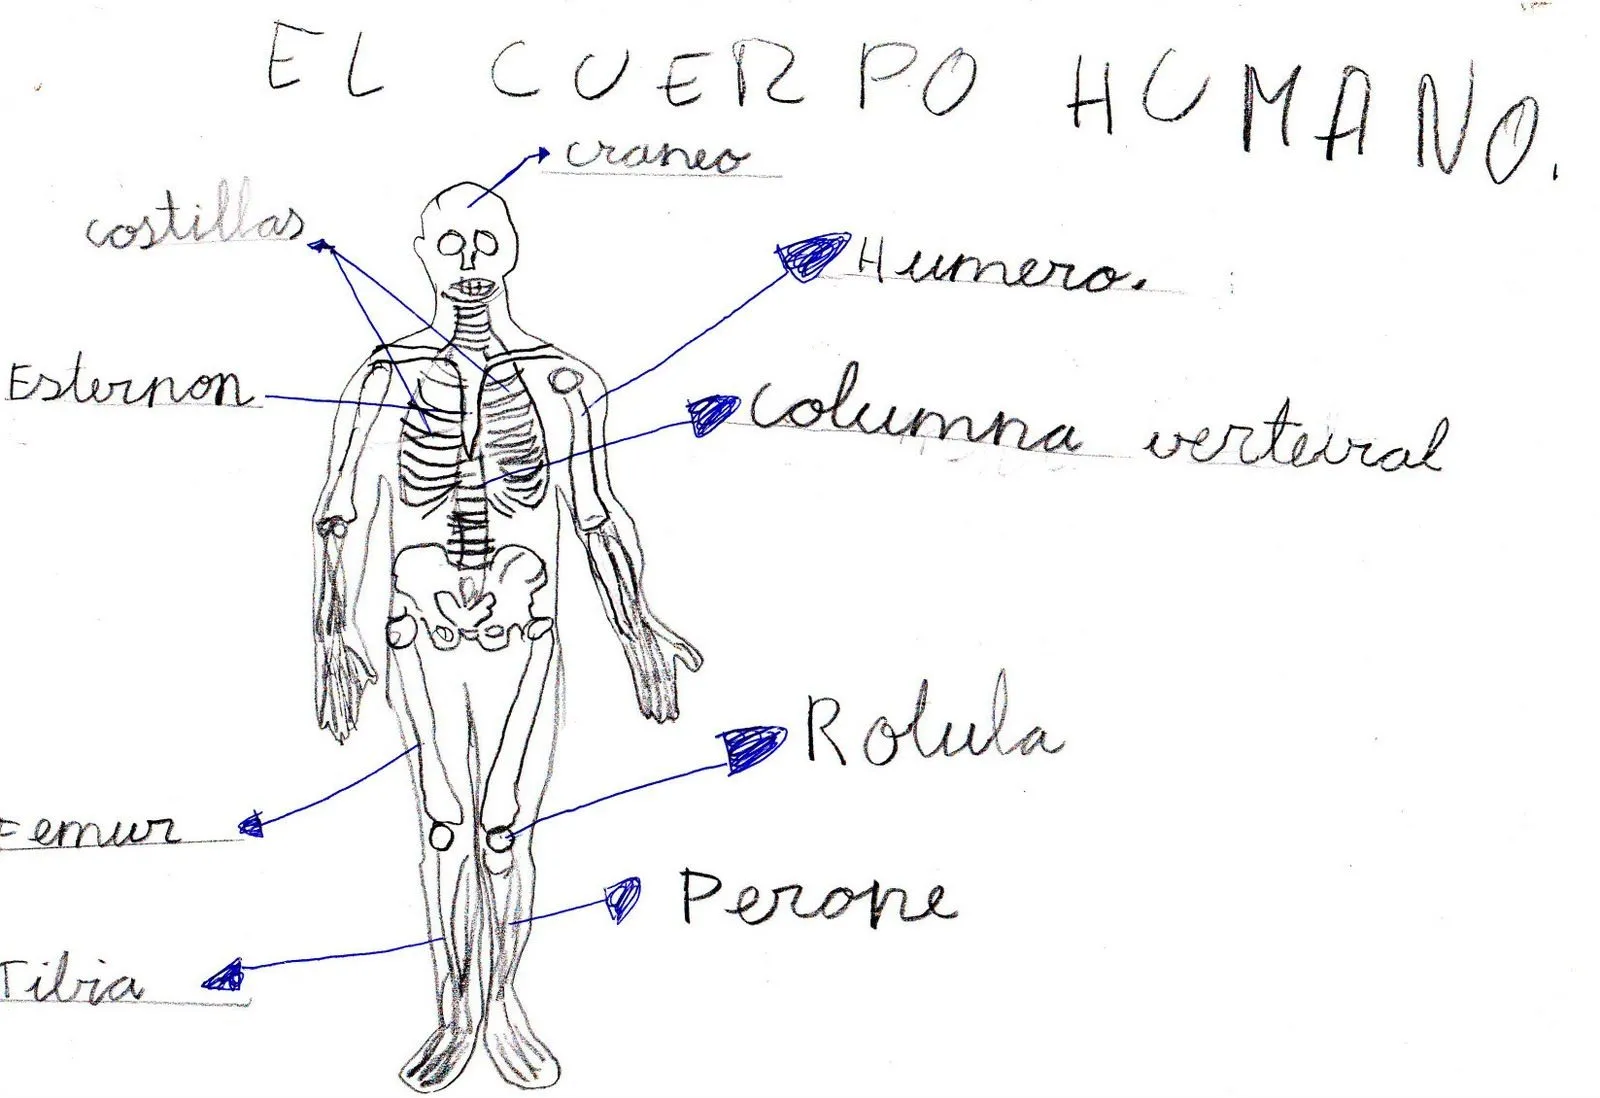 EL CUERPO HUMANO.
craneo
costillas
Humero.
Esternon
Columna verteival
Rotula
Femur
Perone
Tibia